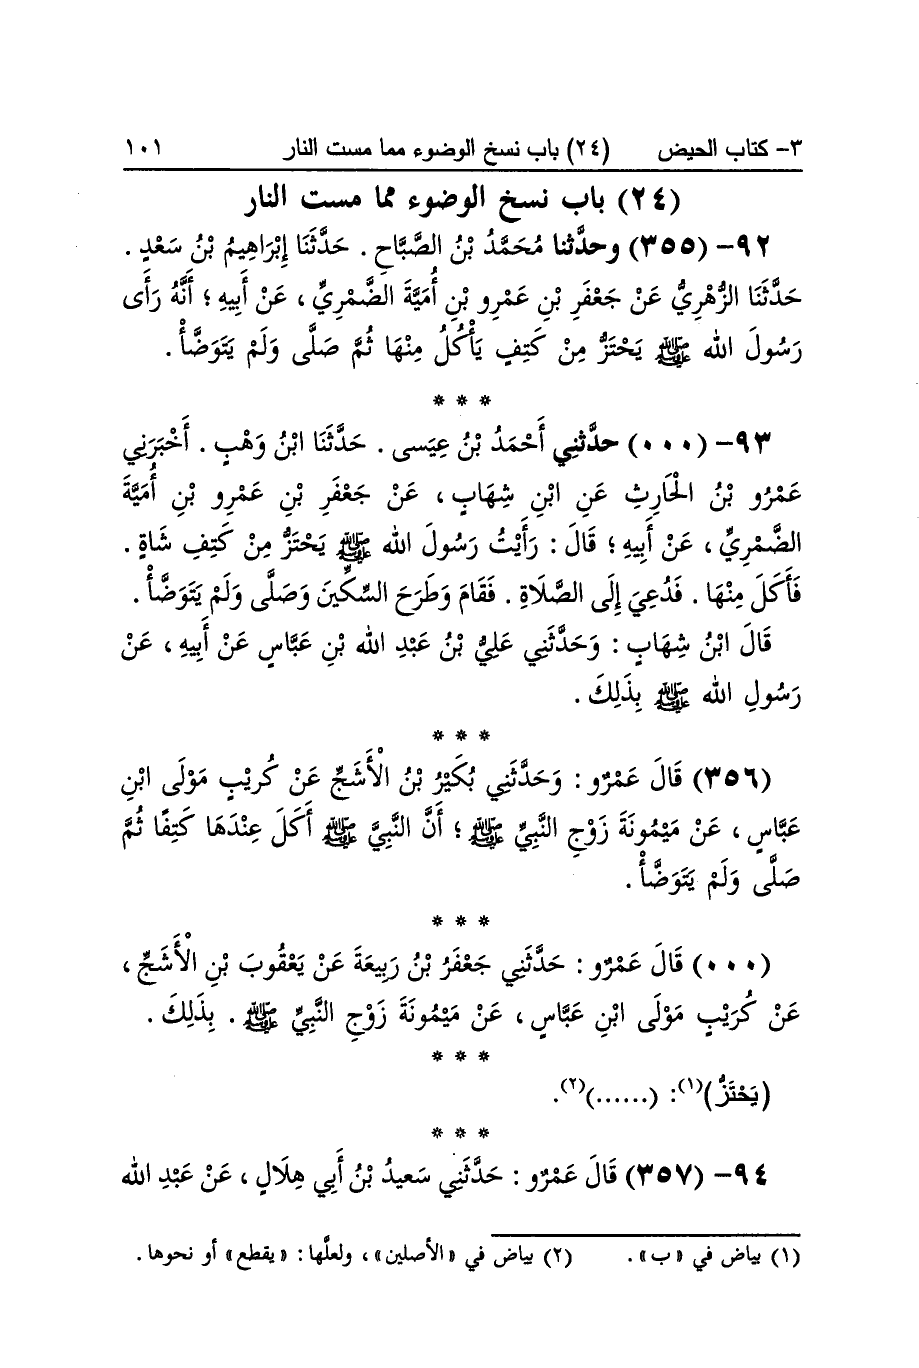 ٣- كتاب الحيض (٢٤) باب نسخ الوضوء مما مست النار ١٠١
(٢٤) باب نسخ الوضوء مما مست النار
٩٢- (٣٥٥) وحدَّثنا مُحَمَّدُ بْنُ الصَّبَّاحِ . حَدَّثَنَا إِبْرَاهِيمُ بْنُ سَعْدٍ .
حَدَّثَنَا الزُّهْرِيُّ عَنْ جَعْفَرِ بْنِ عَمْرِو بْنِ أُمَيَّةَ الضَّمْرِيِّ ، عَنْ أَبِيهِ ؛ أَنَّهُ رَأَى
رَسُولَ الله ﷺ يَحْتَزُّ مِنْ كَتِفٍ يَأْكُلُ مِنْهَا ثُمَّ صَلَّى وَلَمْ يَتَوَضَّأْ .
* * *
٩٣- (٠٠٠) حدَّثنِي أَحْمَدُ بْنُ عِيسَى . حَدَّثَنَا ابْنُ وَهْبٍ . أَخْبَرَنِي
عَمْرُو بْنُ الْحَارِثِ عَنِ ابْنِ شِهَابٍ ، عَنْ جَعْفَرِ بْنِ عَمْرِو بْنِ أُمَيَّةَ
الضَّمْرِيِّ ، عَنْ أَبِيهِ ؛ قَالَ : رَأَيْتُ رَسُولَ الله ﷺ يَحْتَزُّ مِنْ كَتِفِ شَاةٍ .
فَأَكَلَ مِنْهَا . فَدُعِيَ إِلَى الصَّلَاةِ . فَقَامَ وَطَرَحَ السِّكِّينَ وَصَلَّى وَلَمْ يَتَوَضَّأْ .
قَالَ ابْنُ شِهَابٍ : وَحَدَّثَنِي عَلِيُّ بْنُ عَبْدِ الله بْنِ عَبَّاسٍ عَنْ أَبِيهِ ، عَنْ
رَسُولِ الله ﷺ بِذَلِكَ .
* * *
(٣٥٦) قَالَ عَمْرٌو : وَحَدَّثَنِي بُكَيْرُ بْنُ الْأَشَجِّ عَنْ كُرَيْبٍ مَوْلَى ابْنِ
عَبَّاسٍ ، عَنْ مَيْمُونَةَ زَوْجِ النَّبِيِّ ﷺ ؛ أَنَّ النَّبِيَّ ﷺ أَكَلَ عِنْدَهَا كَتِفًا ثُمَّ
صَلَّى وَلَمْ يَتَوَضَّأْ .
* * *
(٠٠٠) قَالَ عَمْرٌو : حَدَّثَنِي جَعْفَرُ بْنُ رَبِيعَةَ عَنْ يَعْقُوبَ بْنِ الْأَشَجِّ ،
عَنْ كُرَيْبٍ مَوْلَى ابْنِ عَبَّاسٍ ، عَنْ مَيْمُونَةَ زَوْجِ النَّبِيِّ ﷺ . بِذَلِكَ .
* * *
(يَحْتَزُّ)(١): (......)(٢).
* * *
٩٤- (٣٥٧) قَالَ عَمْرٌو : حَدَّثَنِي سَعِيدُ بْنُ أَبِي هِلَالٍ ، عَنْ عَبْدِ الله
(١) بياض في «ب» . (٢) بياض في «الأصلين» ، ولعلَّها : «يقطع» أو نحوها .